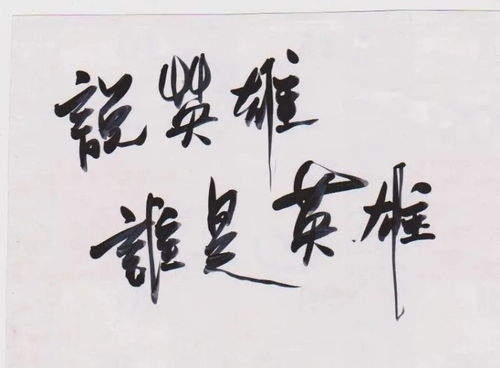 說英雄
誰是英雄